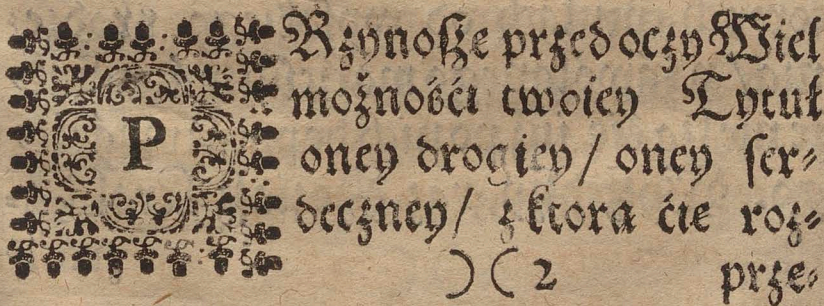 PRzynoſzę przed oczy Wiel
możnośći twoiey Tytuł
oney drogiey / oney ſer⸗
deczney / z ktora ćie roz⸗
)( 2 prze⸗